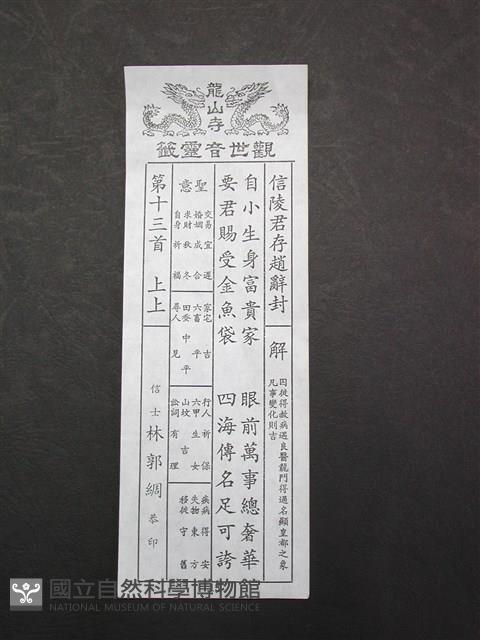 龍山寺
觀世音靈籤
信陵君存趙辭封
解
因徙得救病遇良醫龍門得過名顯皇都之象
凡事變化則吉
自小生身富貴家 眼前萬事總奢華
要君賜受金魚袋 四海傳名足可誇
聖意
交易宜遲
婚姻成合
求財秋冬
自身祈福
家宅吉
六畜平
田蚕中平
尋人見
行人祈保
六甲生女
山坟吉
訟詞有理
疾病得安
失物東方
移徙守舊
第十三首 上上
信士 林郭綢 恭印
國立自然科學博物館
NATIONAL MUSEUM OF NATURAL SCIENCE